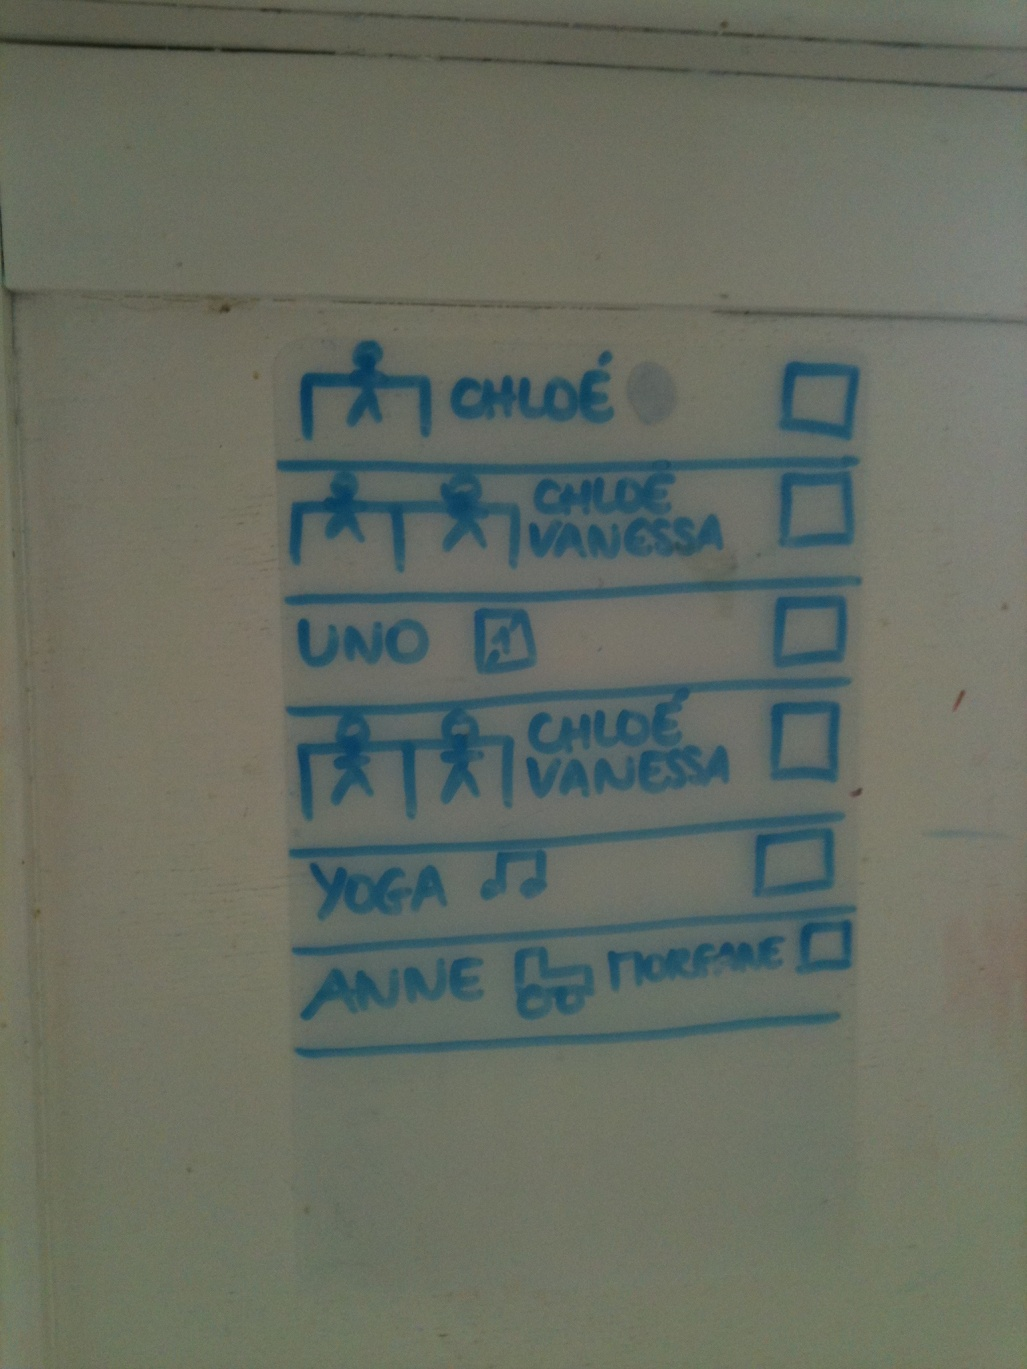 CHLOÉ
CHLOÉ
VANESSA
UNO 1
CHLOÉ
VANESSA
YOGA
ANNE MORGANE